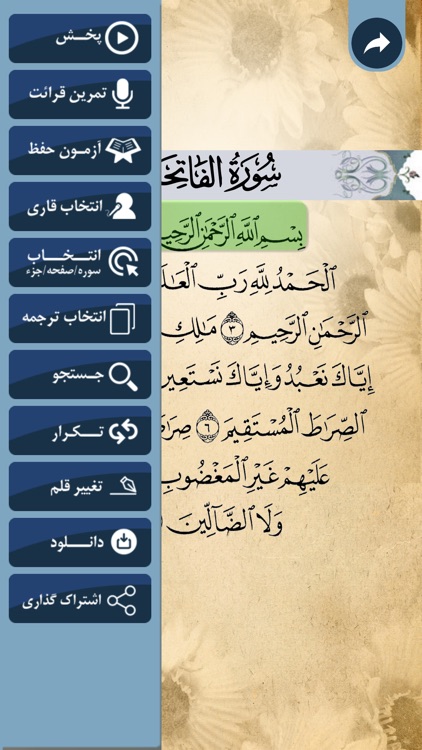 پخـش
تمرین قرائت
آزمـون حفظ
انتخاب قاری
انتـخـاب
سوره/صفحه/جزء
انتخاب ترجمه
جـستجو
تـکـرار
تغییر قلم
دانـلـود
اشتراک گذاری
سُورَةُ الفَاتِحَ
بِسْمِ ٱللَّهِ ٱلرَّحْمَٰنِ ٱلرَّحِيمِ
ٱلْحَمْدُ لِلَّهِ رَبِّ ٱلْعَٰلَ
ٱلرَّحْمَٰنِ ٱلرَّحِيمِ ٣ مَٰلِكِ
إِيَّاكَ نَعْبُدُ وَإِيَّاكَ نَسْتَعِين
ٱلصِّرَٰطَ ٱلْمُسْتَقِيمَ ٦ صِرَٰ
عَلَيْهِمْ غَيْرِ ٱلْمَغْضُوبِ
وَلَا ٱلضَّآلِّينَ